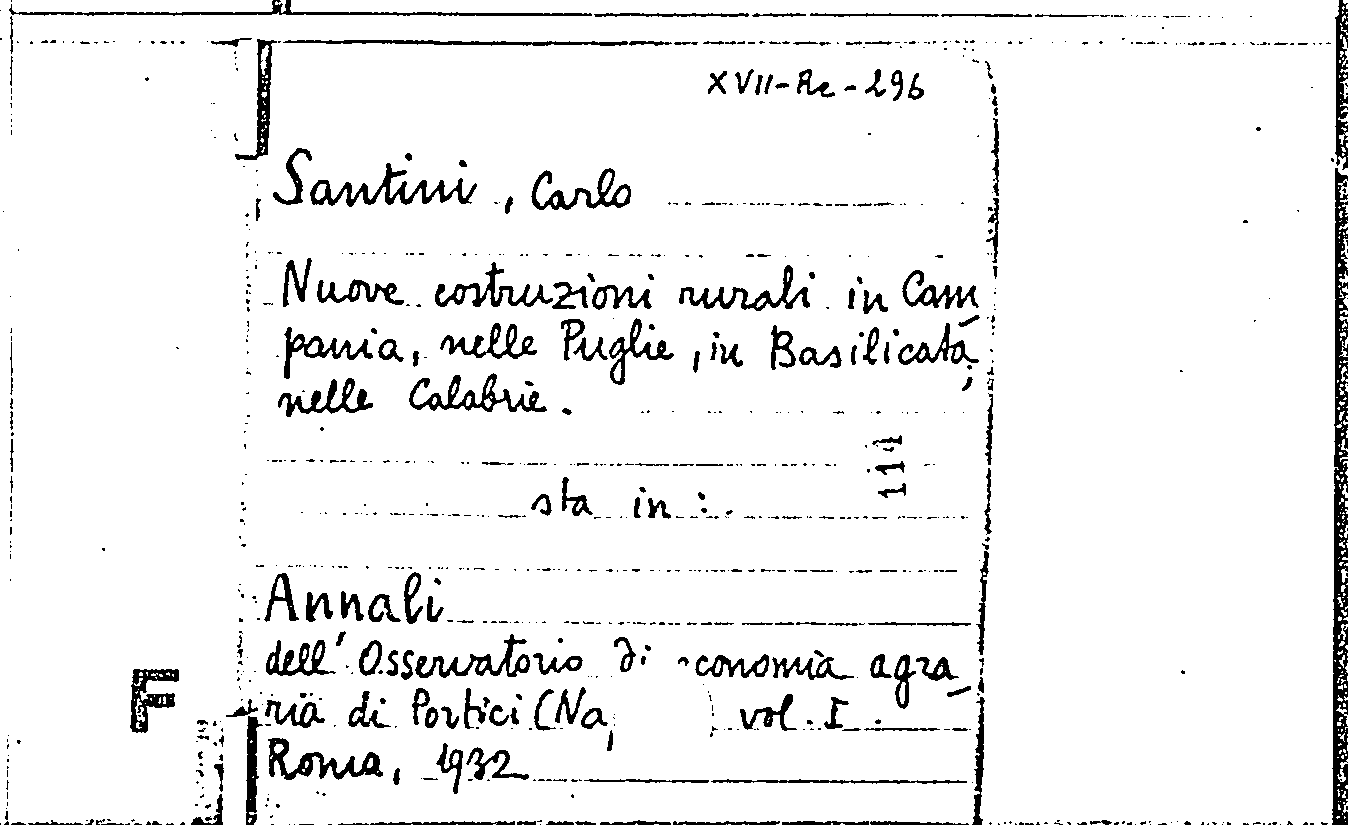 XVII-Re-296
Santini, Carlo
Nuove costruzioni rurali in Cam-
pania, nelle Puglie, in Basilicata,
nelle Calabrie.
111
sta in:
Annali
dell'Osservatorio di economia agra-
F
ria di Portici (Na) vol. I.
Roma, 1932